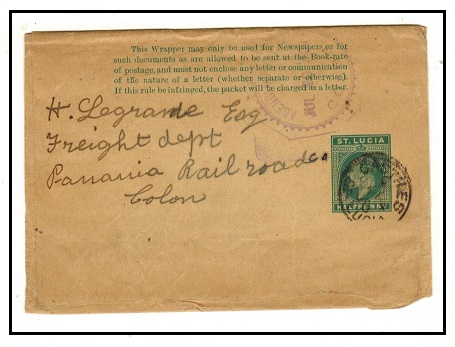 This Wrapper may only be used for Newspapers, or for
such documents as are allowed to be sent at the Book-rate
of postage, and must not enclose any letter or communication
of the nature of a letter (whether separate or otherwise).
If this rule be infringed, the packet will be charged as a letter.
JUL
C
H. Legrande Esq
Freight dept
Panama Railroad Co
Colon
ST. LUCIA
HALFPENNY